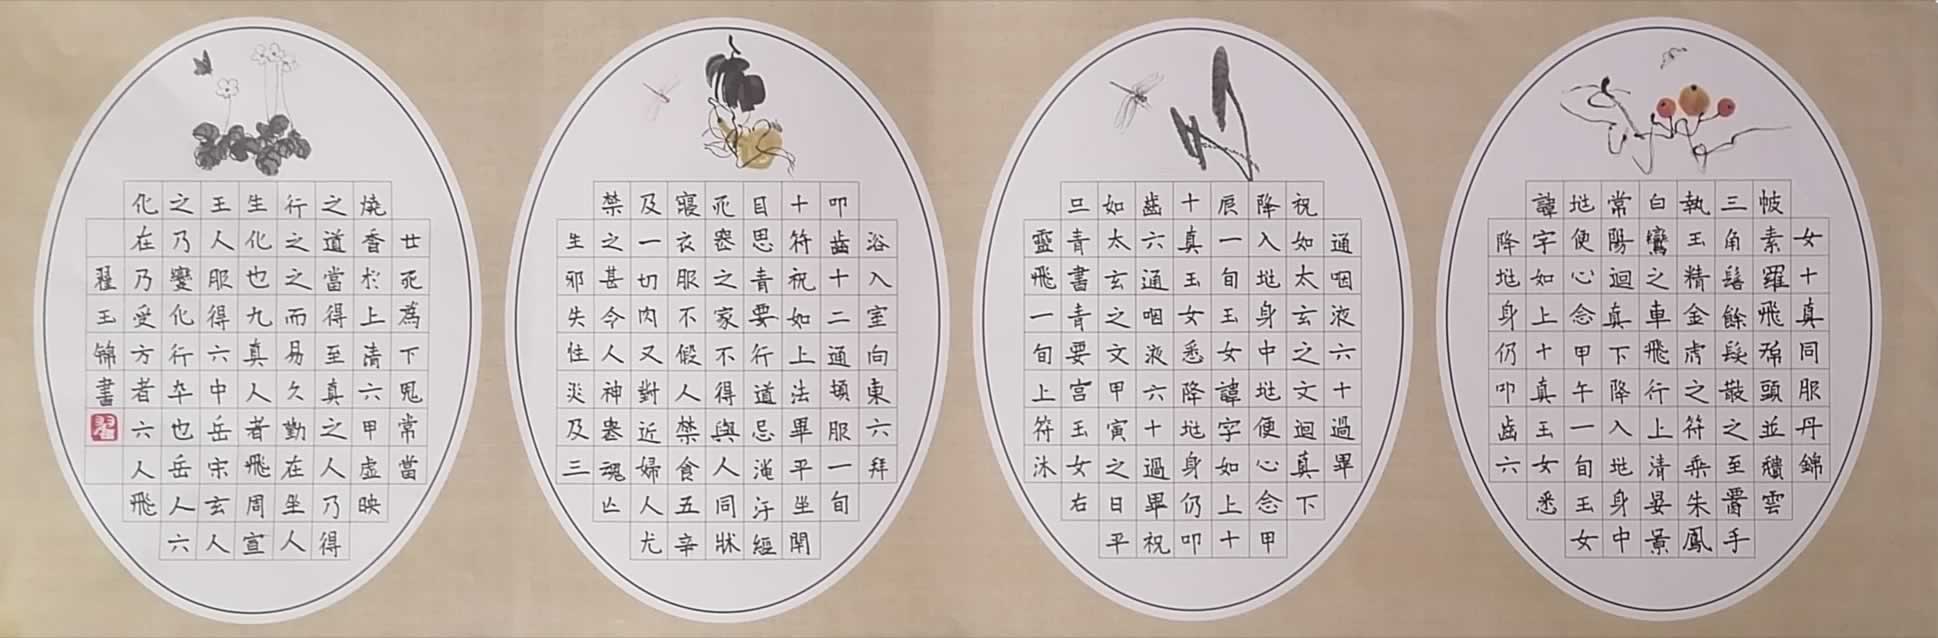 女十真同服丹錦
帔素羅飛帬頭並穨雲
三角髻餘髮散之至手
執玉精金虎之符乘朱鳳
白鸞之車飛行上清晏景
常陽迴真下降入地身中
地便心念甲午一旬玉女
諱字如上十真玉女悉
降地身仍叩齒六
通咽液六十過畢
祝如太玄之文迴真下
降入地身中地便心念甲
辰一旬玉女諱字如上十
十真玉女悉降地身仍叩
齒六通咽液六十過畢祝
如太玄之文甲寅之日平
旦青書青要宮玉女右
靈飛一旬上符沐
浴入室向東六拜
叩齒十二通頓服一旬
十符祝如上法畢平坐閉
目思青要行道忌淹汙經
死喪之家不得與人同牀
寢衣服不假人禁食五辛
及一切內又對近婦人尤
禁之甚令人神喪魂亡
生邪失性災及三
廿死為下鬼常當
燒香於上清六甲虛映
之道當得至真之人乃得
行之之而易久勤在坐人
生化也九真人者飛周宣
王人服得六中岳宋玄人
之乃變化行卒也岳人六
化在乃受方者六人飛
翟玉錦書